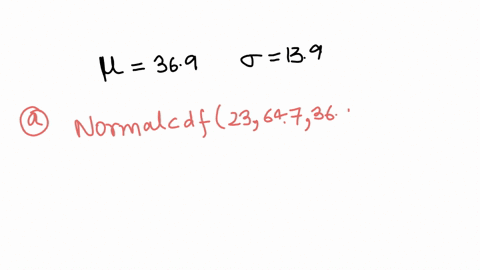 μ = 36.9 σ = 13.9
ⓐ Normalcdf(23,64.7,36.